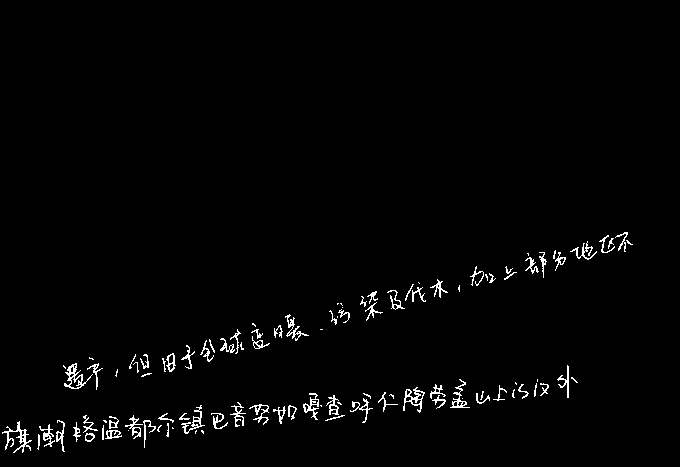 遗产，但由于全球变暖、污染及伐木，加上部分地区不
旗潮格温都尔镇巴音努如嘎查呼仁陶劳盖山上的汉外